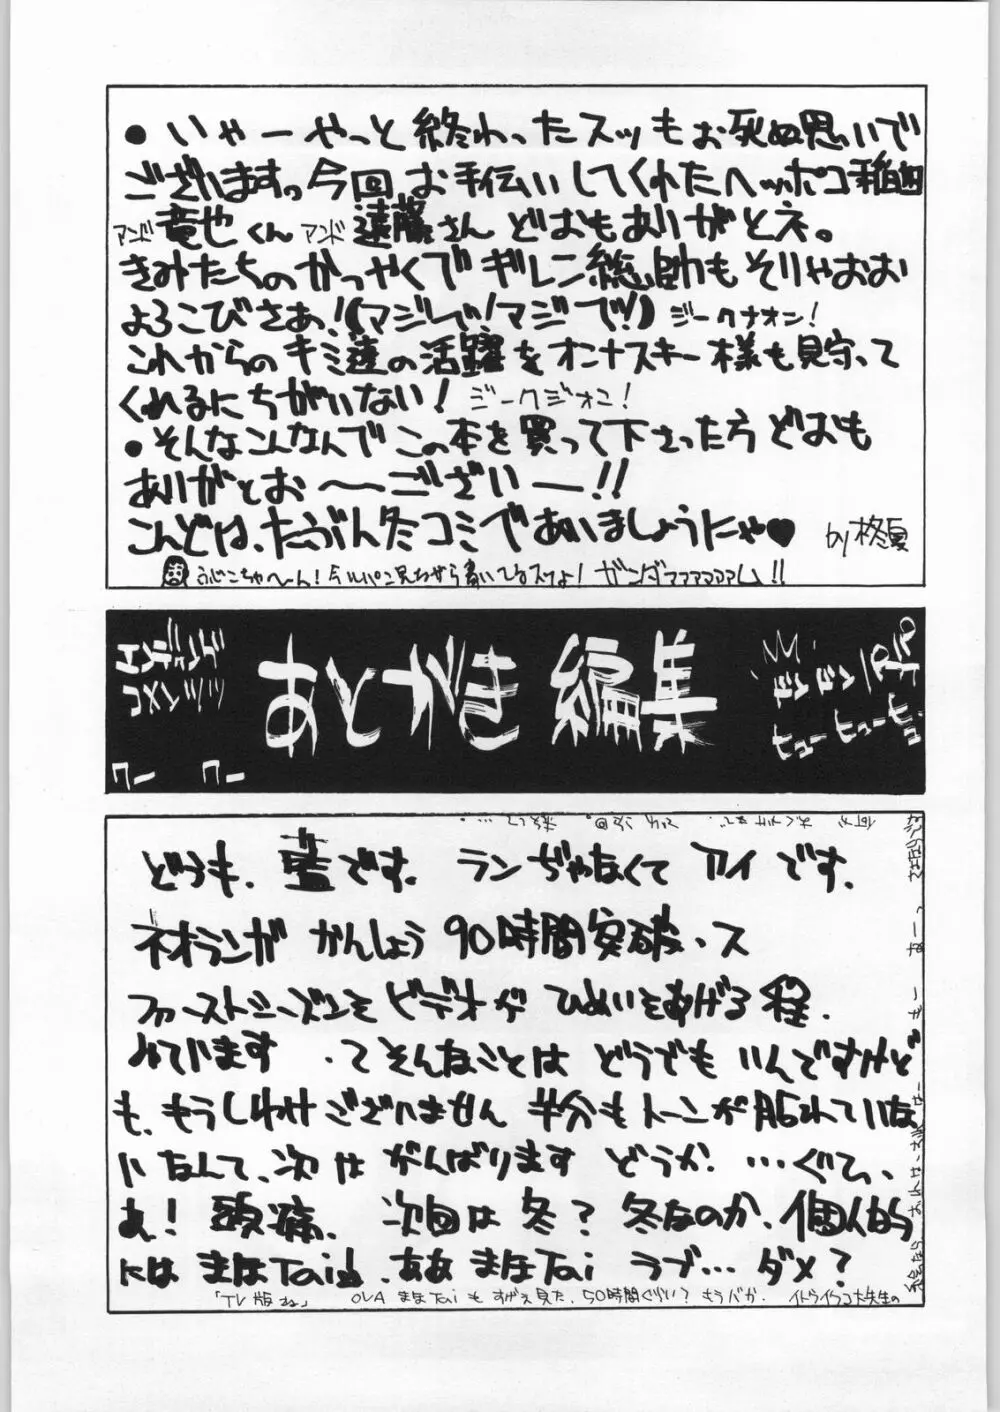 ● いやーやっと終わったスッもお死ぬ思いで
ございますっ今回、お手伝いしてくれたヘッポコ稲田
アンド竜也くんアンド遠藤さんどおもありがとネ。
きみたちのかつやくでギレン総帥もそりゃおお
よろこびさあ!(マジレで!マジで!!) ジークナオン!
これからのキミ達の活躍をオンナスキー様も見守って
くれるにちがいない! ジークジオン!
● そんなこんなんでこの本を買って下さった方どおも
ありがとお〜〜ござい——!!
こんどは、たぶん冬コミであいましょうにゃ♥ by 柊夏
ふじこちゃへ〜ん!今ルパン見ながら書いてるスよ! ガンダァァァァァム!!
エンディング
コメンツツ
あとがき 編集
ドンドン パチパチ
ヒューヒュー
ワー ワー
どうも、藍です。ランぢゃなくてアイです。
ネオランガ かんしょう 90時間突破、ス
ファーストシーズンをビデオが ひめいをあげる程、
みています 、てそんなことは どうでも いんですけど
も、もうしわけございません 半分もトーンが貼れていな
いなんて、次はがんばります どうか…ぐてっ、
あ! 頭痛、次回は冬? 冬なのか、個人的
には まほTaiは、ああ まほTai ラブ…ダメ?
「TV版ね」 OVA まほTaiも すげえ見た、50時間ぐらい? もうバカ、